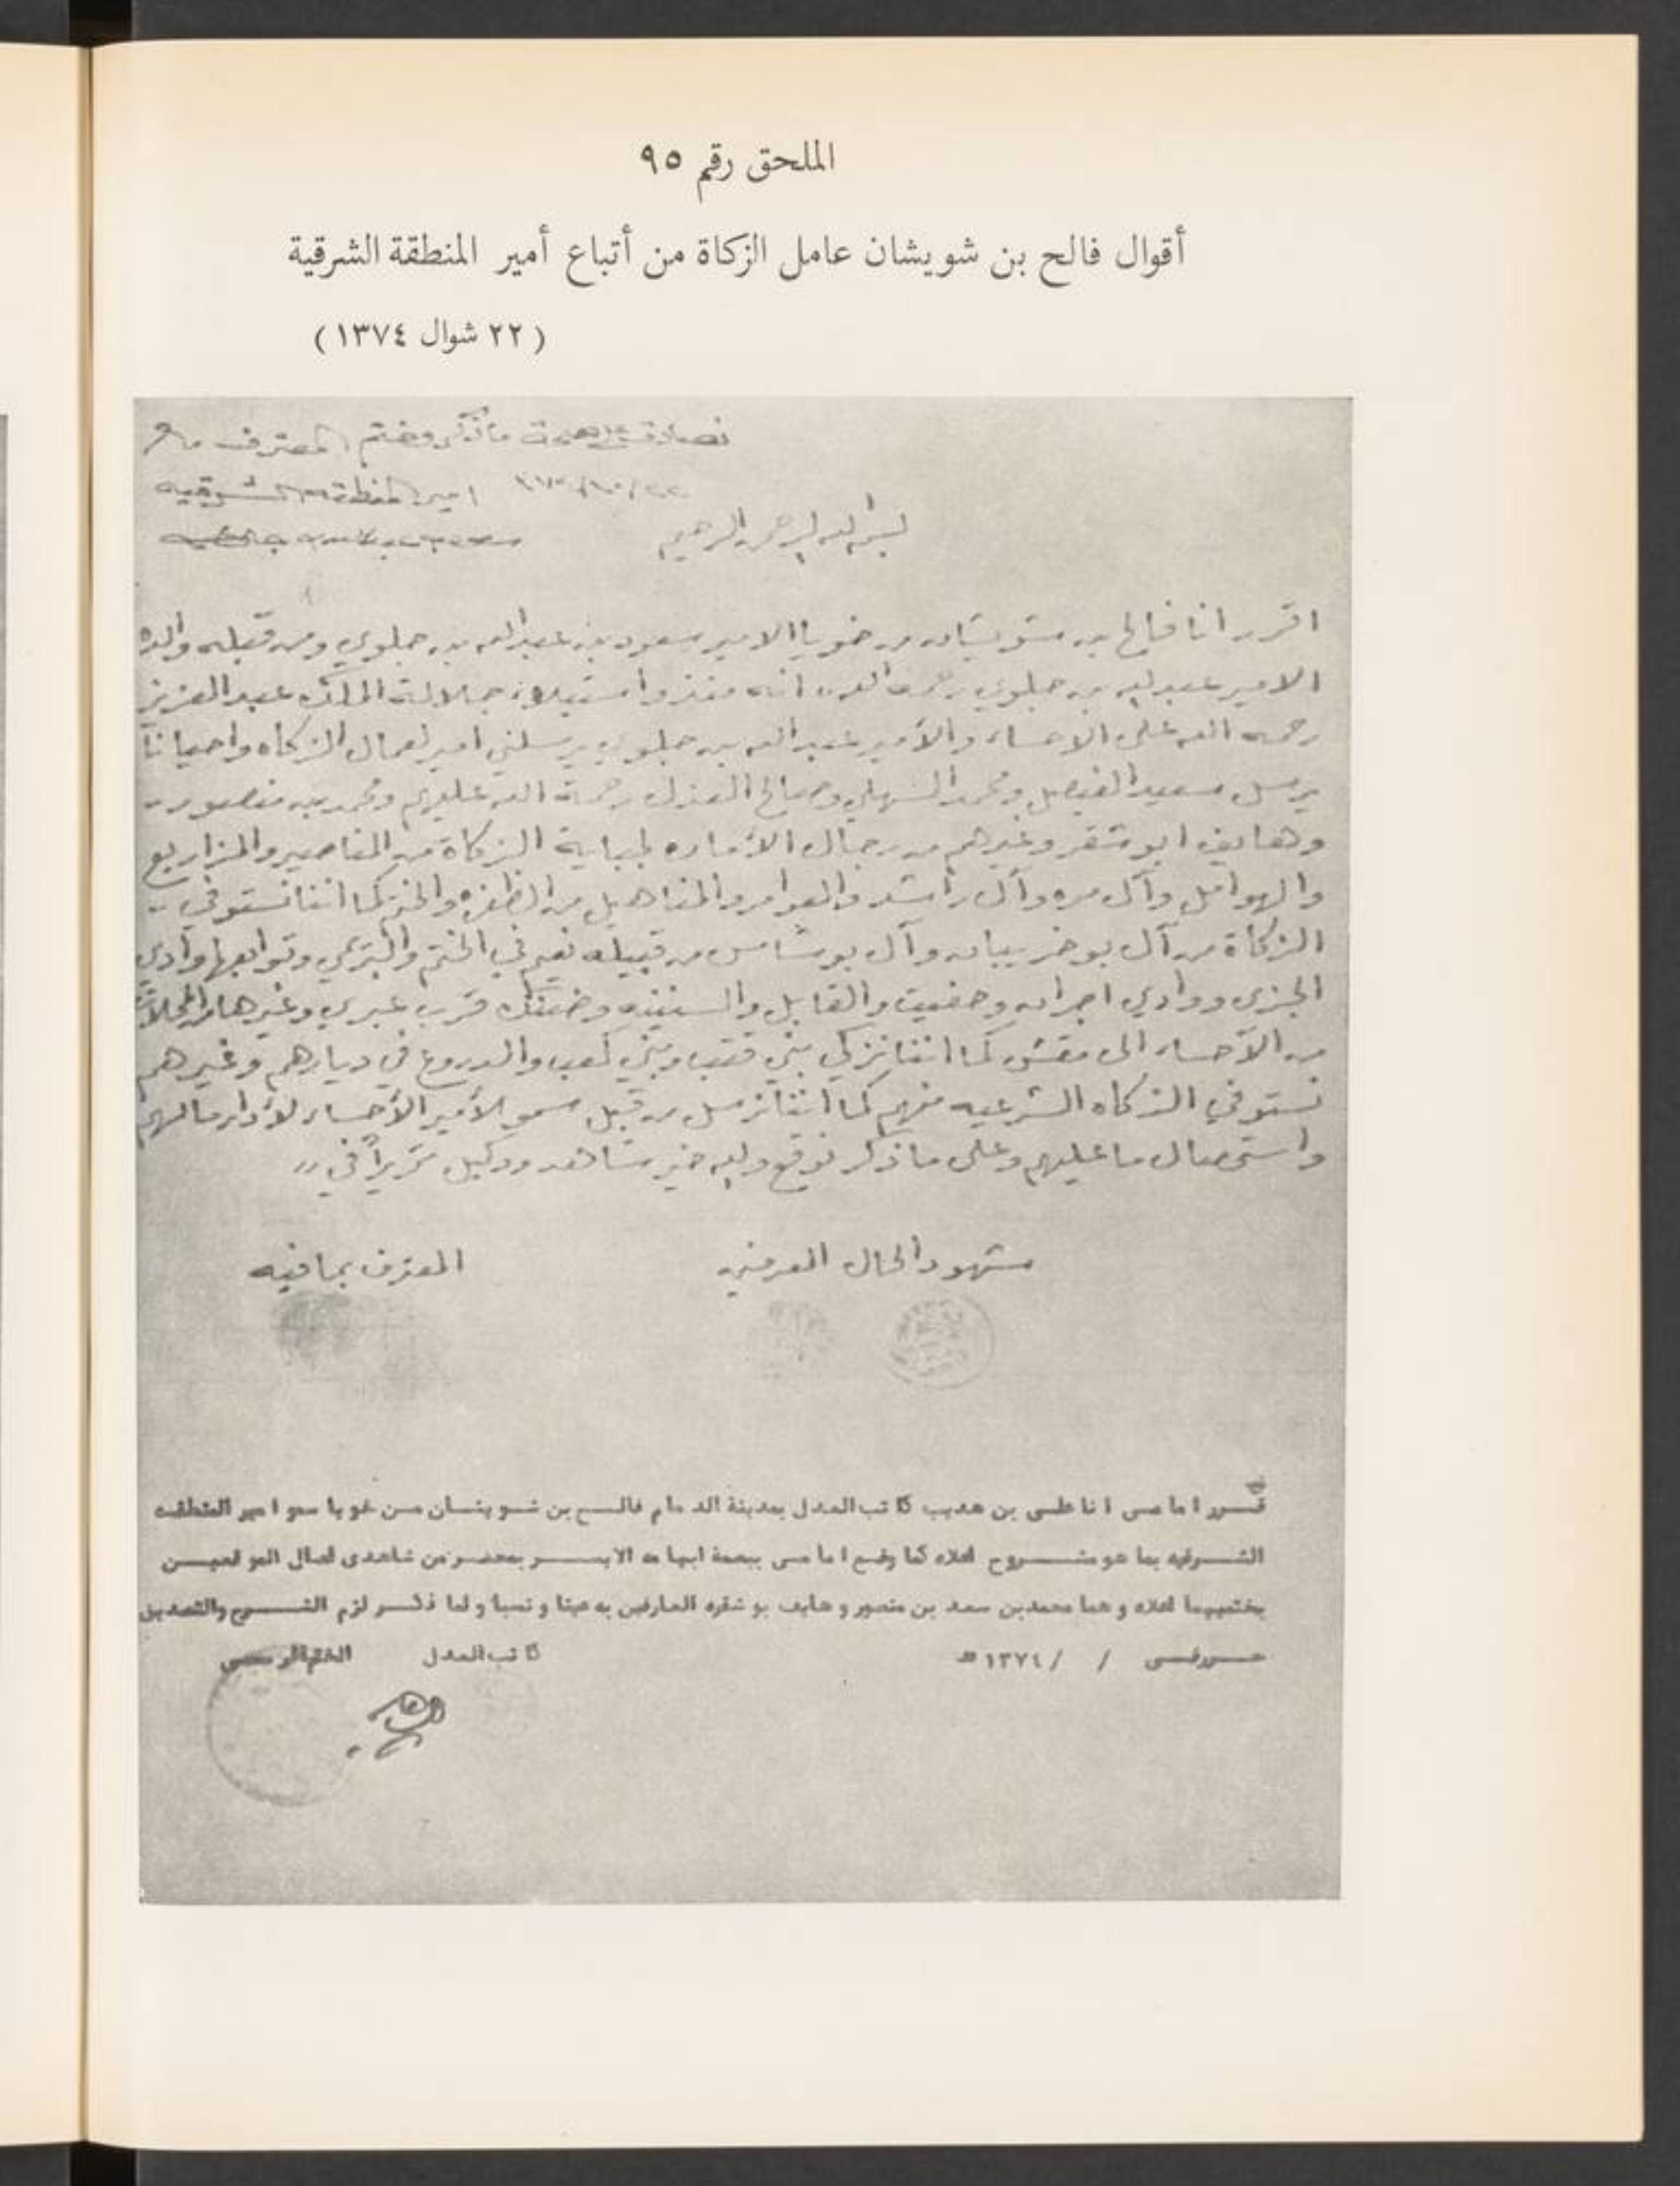 الملحق رقم ٩٥
أقوال فالح بن شويشان عامل الزكاة من أتباع أمير المنطقة الشرقية
( ٢٢ شوال ١٣٧٤ )
نصادق على صحة ما ذكر وختم المعترف
امير المنطقة الشرقيه
بسم الله الرحمن الرحيم
اقرر انا فالح بن شويشان من خويا الامير سعود بن عبدالله بن جلوي ومن قبله والده
الامير عبدالله بن جلوي رحمه الله انه منذ استيلاء جلالة الملك عبدالعزيز
رحمه الله على الاحساء والأمير عبدالله بن جلوي يرسلني امير لعمال الزكاه واحياناً
يرسل سعيد الفيصل ومحمد السهلي وصالح رحمة الله عليهم ومحمد بن منصور
وهايف ابو شقر وغيرهم من رجال الأماره لجباية الزكاة من المناصير والمزاريع
والهوامل وآل مره وآل راشد والعوامر والمناهيل من الظفره والختم كما اننا نستوفي
الزكاة من آل بو خريبان وآل بو شامس من قبيله نعيم في الختم والبريمي وتوابعها وادي
الجزي ووادي اجران وحفيت والقابل والسنينه وضنك قرب عبري وغيرها من المحلات
من الأحساء الى مقشن كما اننا نزكي بني قتب وبني كعب والدروع في ديارهم وغيرهم
نستوفي الزكاه الشرعيه منهم كما اننا نرسل من قبل سمو الأمير الأحساء لأداء مالهم
واستحصال ما عليهم وعلى ما ذكر نوقع والله خير شاهد ووكيل تحريراً في
شهود الحال المعرفين
المعترف بمافيه
قرر امامي انا علي بن هديب كاتب العدل بمدينة الدمام فالح بن شويشان من خويا سمو امير المنطقه
الشرقيه بما هو مشروح اعلاه كما وقع امامي ببصمة ابهامه الايسر بمحضر من شاهدي الحال الموقعين
بختميهما اعلاه وهما محمد بن سعد بن منصور وهايف بو شقره العارفين به عينا ونسبا ولما ذكر لزم الشرح والتصديق
حرر في / / ١٣٧٤ هـ
كاتب العدل
الختم الرسمي